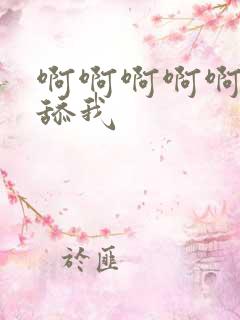 啊啊啊啊啊
舔我
於匪